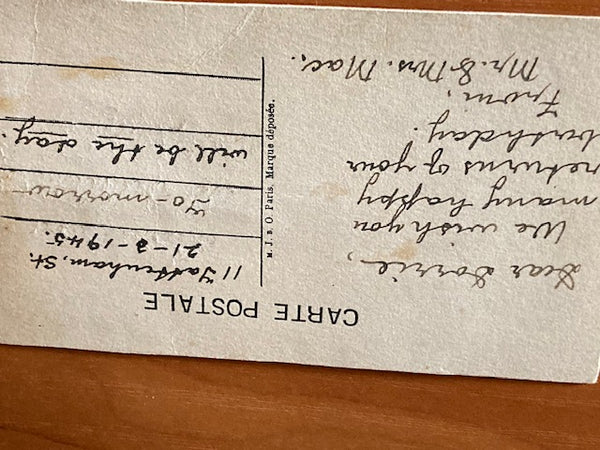 CARTE POSTALE
Dear Dorrie,
We wish you
many happy
returns of your
birthday.
From,
Mr. & Mrs. Mac.
Paris. Marque déposée.
11 Tattenham, St.
21-3-1945.
To-morrow
will be the day.